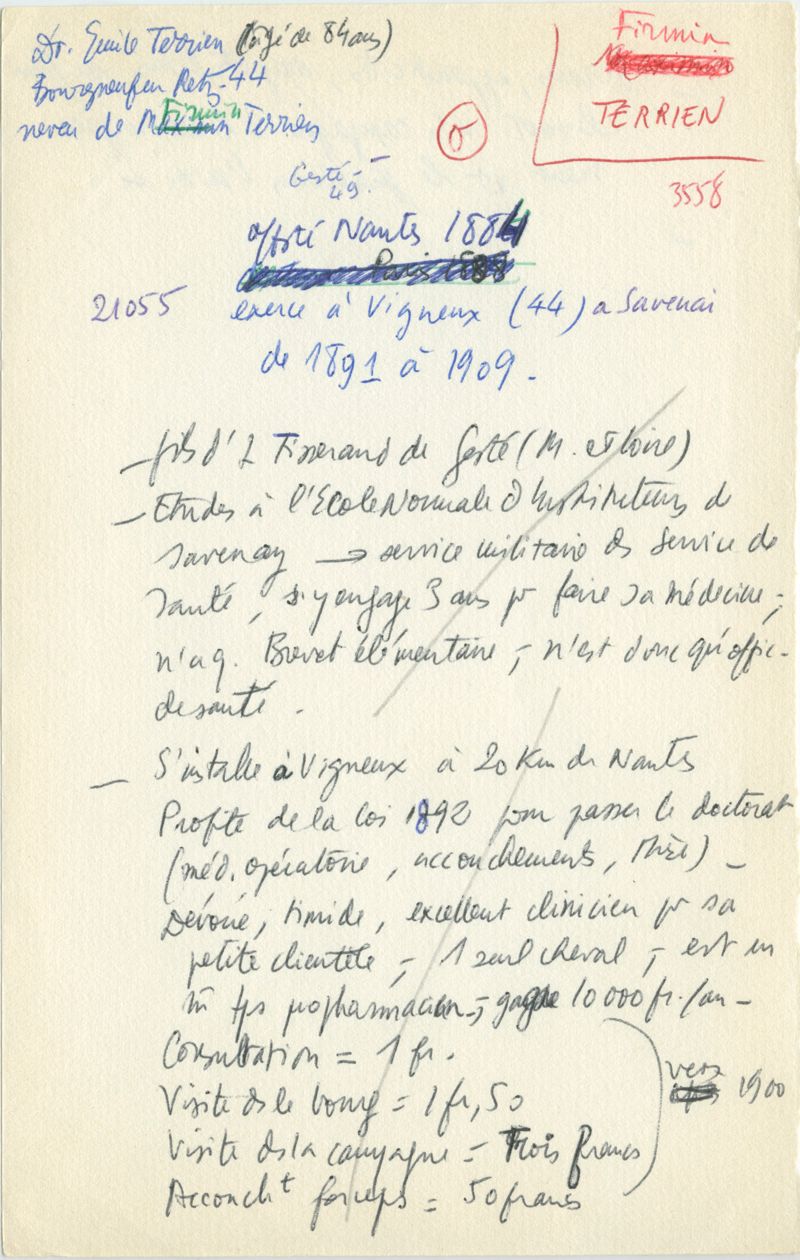 Dr. Emile Terrien (âgé de 84 ans)
Bourgneuf en Retz - 44
neveu de Firmin Terrien
Firmin
TERRIEN
5
3558
Gesté -
49
offté Nantes 1884
21055 exerce à Vigneux (44) a Savenai
de 1891 à 1909 .
- fils d'1 Tisserand de Gesté (M. et Loire)
- Etudes à l'Ecole Normale d'Instituteurs de
Savenay → service militaire ds Service de
Santé, s'y engage 3 ans pr faire sa médecine ;
n'a q. Brevet élémentaire ; n'est donc qu'offic.
de santé .
- S'installe à Vigneux à 20 Km de Nantes
Profite de la loi 1892 pour passer le doctorat
(méd. opératoire, accouchements, thèse) -
Dévoué, timide, excellent clinicien pr sa
petite clientèle ; 1 seul cheval ; est en
m̂ tps propharmacien ; gagne 10 000 fr./an -
Consultation = 1 fr.
Visite ds le bourg = 1 fr, 50
vers 1900
Visite ds la campagne = Trois francs
Accouch^t forceps = 50 francs